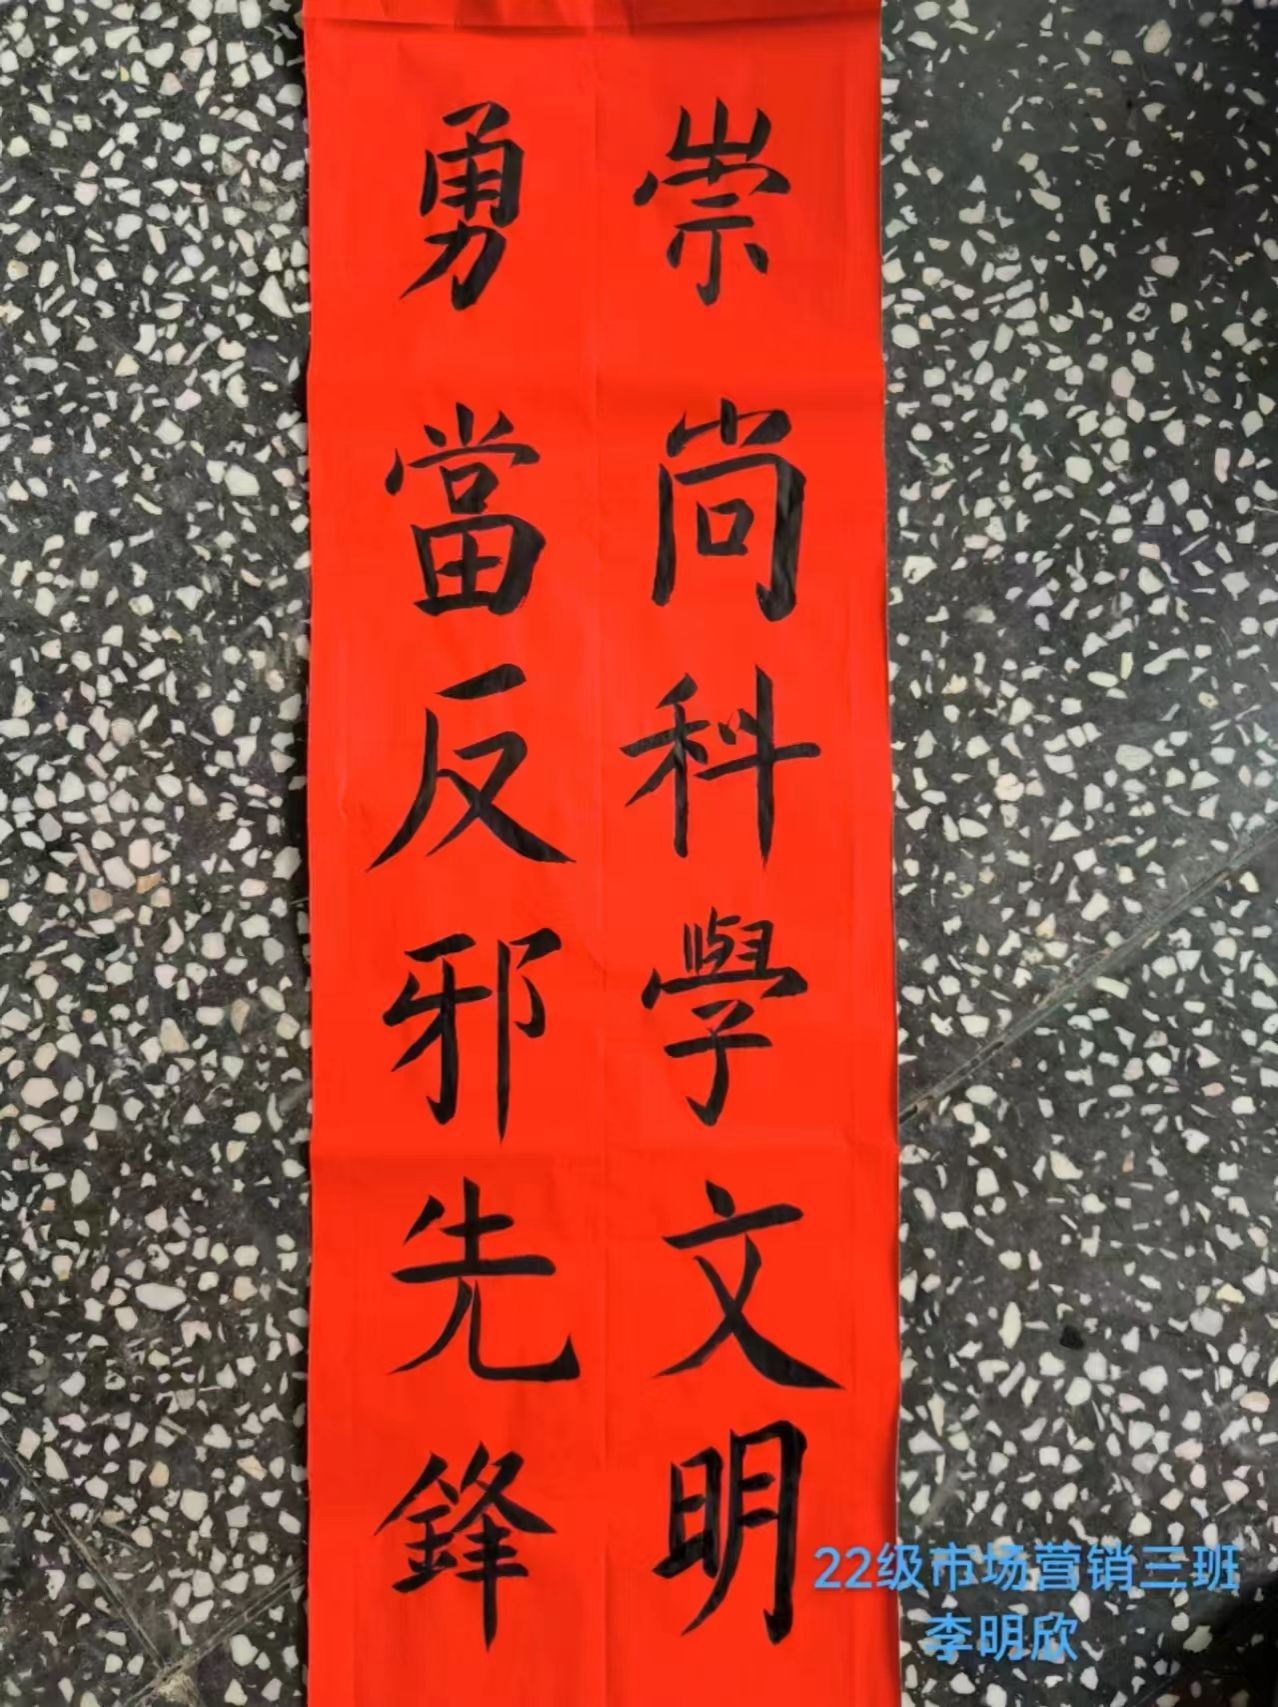 崇尚科學文明
勇當反邪先鋒
22级市场营销三班
李明欣